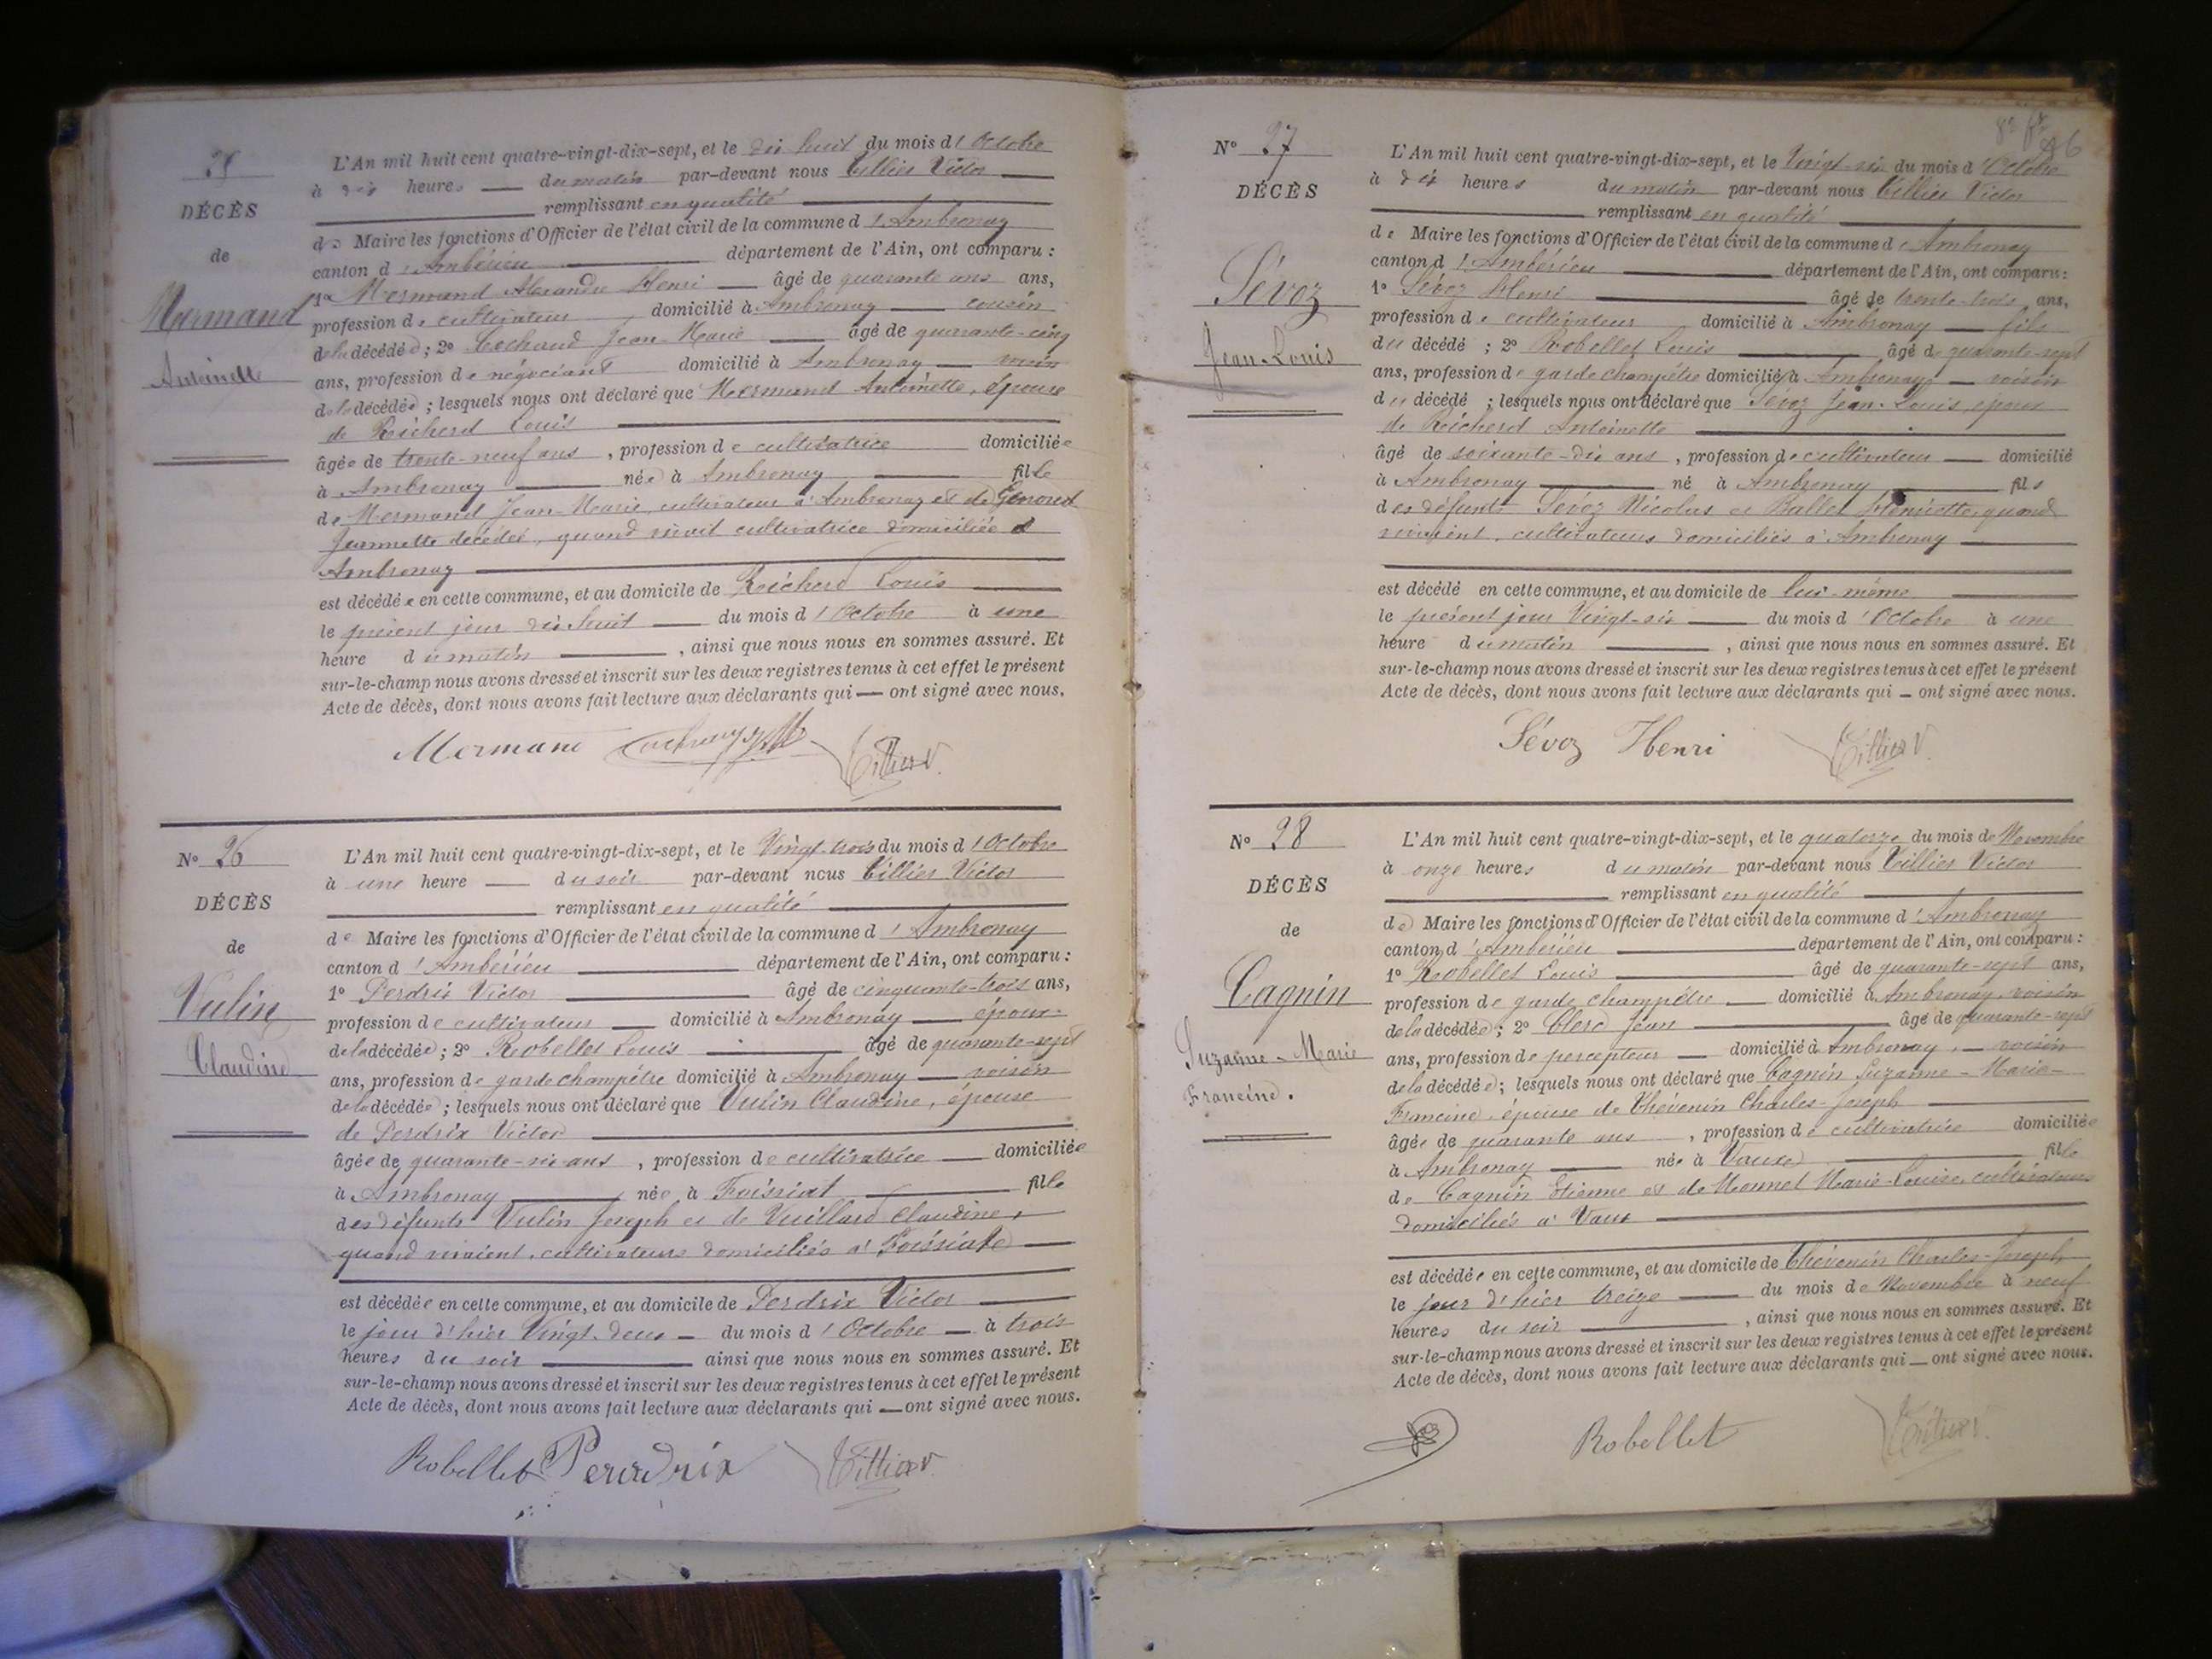 25
DÉCÈS
de
Mermand
Antoinette
L'An mil huit cent quatre-vingt-dix-sept, et le dix huit du mois d'Octobre
à dix heures — du matin par-devant nous Tillier Victor —
remplissant en qualité
de Maire les fonctions d'Officier de l'état civil de la commune d'Ambronay
canton d'Ambérieu — département de l'Ain, ont comparu :
1º Mermand Alexandre Henri — âgé de quarante ans ans,
profession de cultivateur domicilié à Ambronay — cousin
de la décédée ; 2º Cochaud Jean-Marie — âgé de quarante-cinq
ans, profession de négociant domicilié à Ambronay — voisin
de la décédée ; lesquels nous ont déclaré que Mermand Antoinette, épouse
de Reicherd Louis
âgée de trente-neuf ans , profession de cultivatrice domiciliée
à Ambronay — née à Ambronay — fille
de Mermand Jean-Marie, cultivateur à Ambronay et de
Jeannette décédée, quand vivait cultivatrice domiciliée à
Ambronay
est décédée en cette commune, et au domicile de Reicherd Louis
le présent jour dix huit — du mois d'Octobre à une
heure du matin — , ainsi que nous nous en sommes assuré. Et
sur-le-champ nous avons dressé et inscrit sur les deux registres tenus à cet effet le présent
Acte de décès, dont nous avons fait lecture aux déclarants qui — ont signé avec nous.
Mermand Tillier V.
Nº 26
DÉCÈS
de
Vulin
Claudine
L'An mil huit cent quatre-vingt-dix-sept, et le Vingt-trois du mois d'Octobre
à une heure — du soir par-devant nous Tillier Victor
remplissant en qualité
de Maire les fonctions d'Officier de l'état civil de la commune d'Ambronay
canton d'Ambérieu — département de l'Ain, ont comparu :
1º Perdrix Victor — âgé de cinquante-trois ans,
profession de cultivateur — domicilié à Ambronay — époux
de la décédée ; 2º Robellet Louis — âgé de quarante-sept
ans, profession de garde champêtre domicilié à Ambronay — voisin
de la décédée ; lesquels nous ont déclaré que Vulin Claudine, épouse
de Perdrix Victor
âgée de quarante-six ans , profession de cultivatrice — domiciliée
à Ambronay — née à Foissiat — fille
des défunts Vulin Joseph et de Vuillard Claudine,
quand vivaient, cultivateurs domiciliés à Foissiat
est décédée en cette commune, et au domicile de Perdrix Victor
le jour d'hier Vingt-deux — du mois d'Octobre — à trois
heures du soir — ainsi que nous nous en sommes assuré. Et
sur-le-champ nous avons dressé et inscrit sur les deux registres tenus à cet effet le présent
Acte de décès, dont nous avons fait lecture aux déclarants qui — ont signé avec nous.
Robellet Perdrix Tillier V.
46
Nº 27
DÉCÈS
Sévoz
Jean-Louis
L'An mil huit cent quatre-vingt-dix-sept, et le Vingt-six du mois d'Octobre
à dix heures du matin par-devant nous Tillier Victor
remplissant en qualité
de Maire les fonctions d'Officier de l'état civil de la commune d'Ambronay
canton d'Ambérieu — département de l'Ain, ont comparu :
1º Sévoz Henri — âgé de trente-trois ans,
profession de cultivateur domicilié à Ambronay — fils
du décédé ; 2º Robellet Louis — âgé de quarante-sept
ans, profession de garde champêtre domicilié à Ambronay — voisin
du décédé ; lesquels nous ont déclaré que Sévoz Jean-Louis, époux
de Reicherd Antoinette
âgé de soixante-dix ans , profession de cultivateur — domicilié
à Ambronay — né à Ambronay — fils
des défunts Sévoz Nicolas et Ballet Henriette, quand
vivaient, cultivateurs domiciliés à Ambronay
est décédé en cette commune, et au domicile de lui-même
le présent jour Vingt-six — du mois d'Octobre à une
heure du matin — , ainsi que nous nous en sommes assuré. Et
sur-le-champ nous avons dressé et inscrit sur les deux registres tenus à cet effet le présent
Acte de décès, dont nous avons fait lecture aux déclarants qui — ont signé avec nous.
Sévoz Henri Tillier V.
Nº 28
DÉCÈS
de
Cagnin
Suzanne-Marie
Francine.
L'An mil huit cent quatre-vingt-dix-sept, et le quatorze du mois de Novembre
à onze heures du matin par-devant nous Tillier Victor
remplissant en qualité
de Maire les fonctions d'Officier de l'état civil de la commune d'Ambronay
canton d'Ambérieu — département de l'Ain, ont comparu :
1º Robellet Louis — âgé de quarante-sept ans,
profession de garde champêtre — domicilié à Ambronay, voisin
de la décédée ; 2º Clerc Jean — âgé de quarante-sept
ans, profession de percepteur — domicilié à Ambronay, — voisin
de la décédée ; lesquels nous ont déclaré que Cagnin Suzanne-Marie-
Francine, épouse de Thévenin Charles-Joseph
âgée de quarante ans , profession de cultivatrice domiciliée
à Ambronay — née à Vaux — fille
de Cagnin Etienne et de Monnet Marie-Louise, cultivateurs
domiciliés à Vaux
est décédée en cette commune, et au domicile de Thévenin Charles-Joseph
le jour d'hier treize — du mois de Novembre à neuf
heures du soir — , ainsi que nous nous en sommes assuré. Et
sur-le-champ nous avons dressé et inscrit sur les deux registres tenus à cet effet le présent
Acte de décès, dont nous avons fait lecture aux déclarants qui — ont signé avec nous.
Robellet Tillier V.